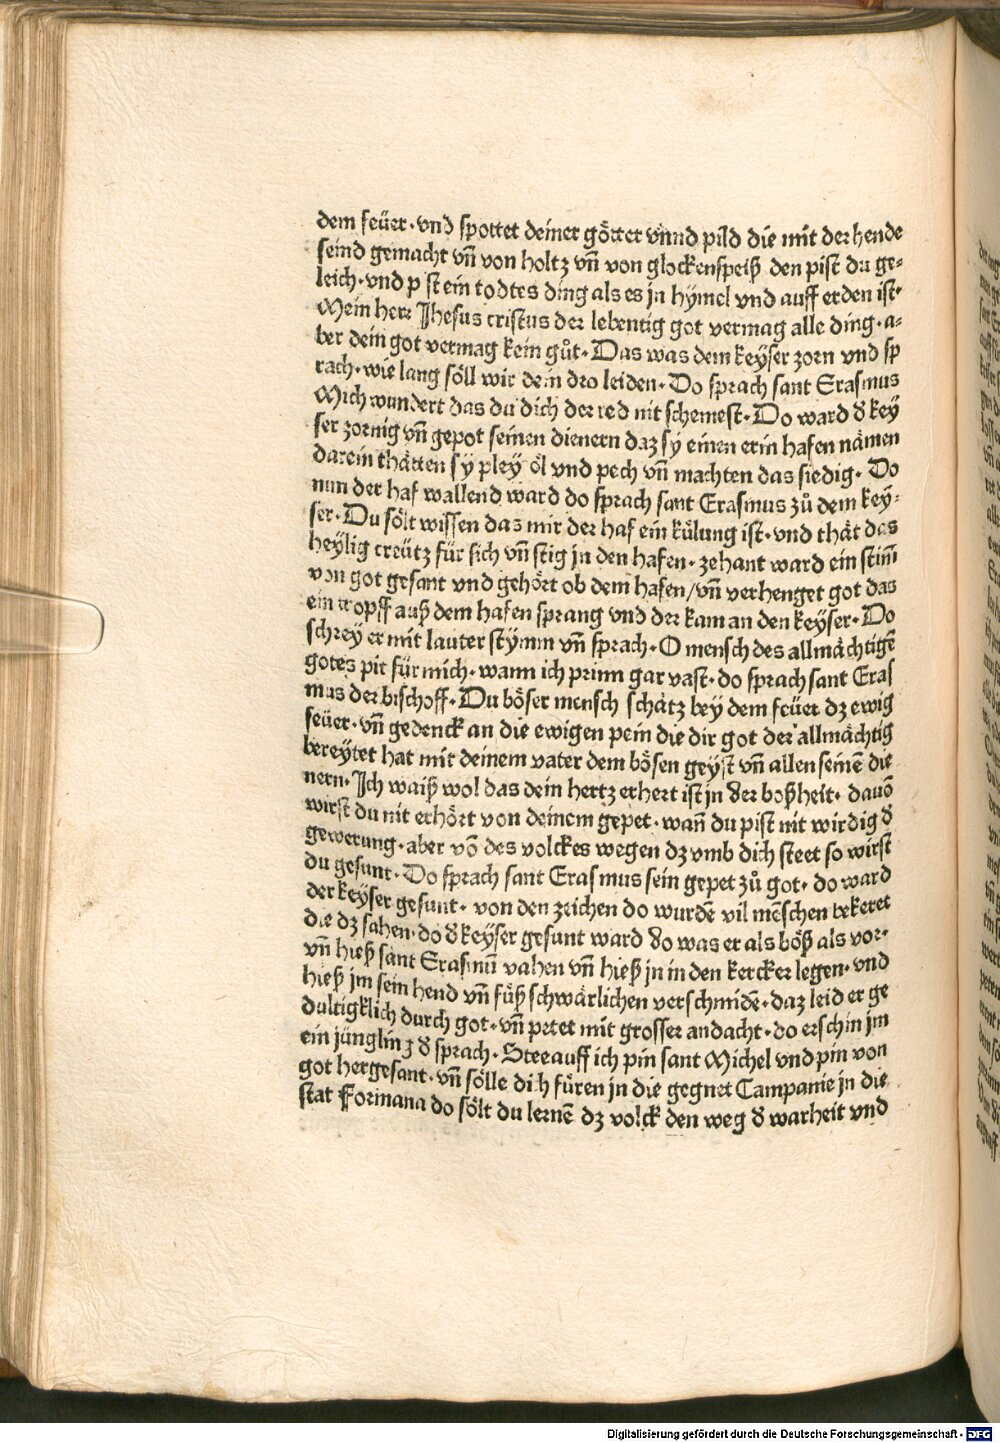 dem feüer·vnd spottet deiner götter vnnd pild die mit der hende
seind gemacht vñ von holtz vñ von glockenspeiß den pist du ge⸗
leich·vnd p st ein todtes ding als es jn hymel vnd auff erden ist·
Mein herr Jhesus cristus der lebentig got vermag alle ding·a⸗
ber dein got vermag kein gůt·Das was dem keyser zorn vnd sp
rach·wie lang söll wir dein dro leiden·Do sprach sant Erasmus
Mich wundert das du dich der red nit schemest·Do ward ꝺ key
ser zornig vñ gepot seinen dienern daz sy einen erin hafen nämen
darein thätten sy pley öl vnd pech vñ machten das siedig·Do
nun der haf wallend ward do sprach sant Erasmus zů dem key⸗
ser·Du sölt wissen das mir der haf ein külung ist·vnd thät das
heylig creütz für sich vñ stig jn den hafen·zehant ward ein stim̃
von got gesant vnd gehört ob dem hafen/vñ verhenget got das
ein tropff auß dem hafen sprang vnd der kam an den keyser·Do
schrey er mit lauter stymm vñ sprach·O mensch des allmächtigẽ
gotes pit für mich·wann ich prinn gar vast·do sprach sant Eras
mus der bischoff·Du böser mensch schätz bey dem feüer dz ewig
feüer·vñ gedenck an die ewigen pein die dir got der allmächtig
bereytet hat mit deinem vater dem bösen geyst vñ allen seinẽ die
nern·Ich waiß wol das dein hertz erhert ist jn ꝺer boßheit·dauõ
wirst du nit erhört von deinem gepet·wañ du pist nit wirdig ꝺ
gewerung·aber võ des volckes wegen dz vmb dich steet so wirst
du gesunt·Do sprach sant Erasmus sein gepet zů got·do ward
der keyser gesunt·von den zeichen do wurdẽ vil mẽschen bekeret
die dz sahen·do ꝺ keyser gesunt ward ꝺo was er als böß als vor·
vñ hieß sant Erasmũ vahen vñ hieß jn in den kercker legen·vnd
hieß jm sein hend vñ füß schwärlichen verschmidẽ·daz leid er ge
dultigklich durch got·vñ petet mit grosser andacht·do erschin jm
ein jüngling ꝺ sprach·Stee auff ich pin sant Michel vnd pin von
got her gesant·vñ sölle di h füren jn die gegnet Campanie jn die
stat Formana do sölt du lernẽ dz volck den weg ꝺ warheit vnd
Digitalisierung gefördert durch die Deutsche Forschungsgemeinschaft - DFG